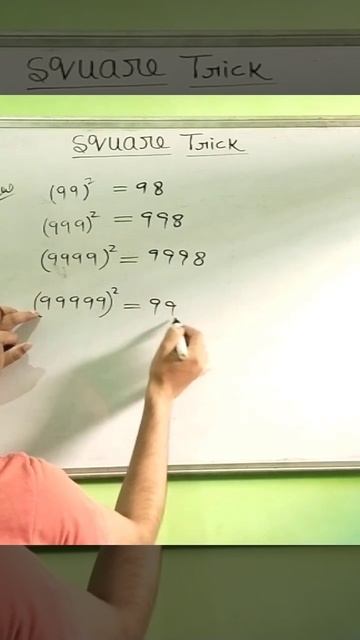 Square Trick
Square Trick
(99)² = 98
(999)² = 998
(9999)² = 9998
(99999)² = 99